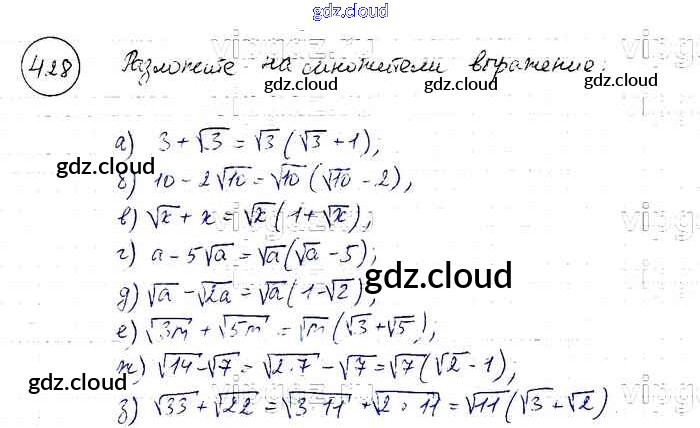 gdz.cloud
428 Разложите на множители выражение:
gdz.cloud gdz.cloud
а) 3 + √3 = √3 (√3 + 1);
gdz.cloud
б) 10 - 2√10 = √10 (√10 - 2),
в) √x + x = √x (1 + √x);
г) a - 5√a = √a (√a - 5);
gdz.cloud
д) √a - √2a = √a (1 - √2),
е) √3m + √5m = √m (√3 + √5),
ж) √14 - √7 = √2·7 - √7 = √7 (√2 - 1);
gdz.cloud gdz.cloud
з) √33 + √22 = √3·11 + √2·11 = √11 (√3 + √2)